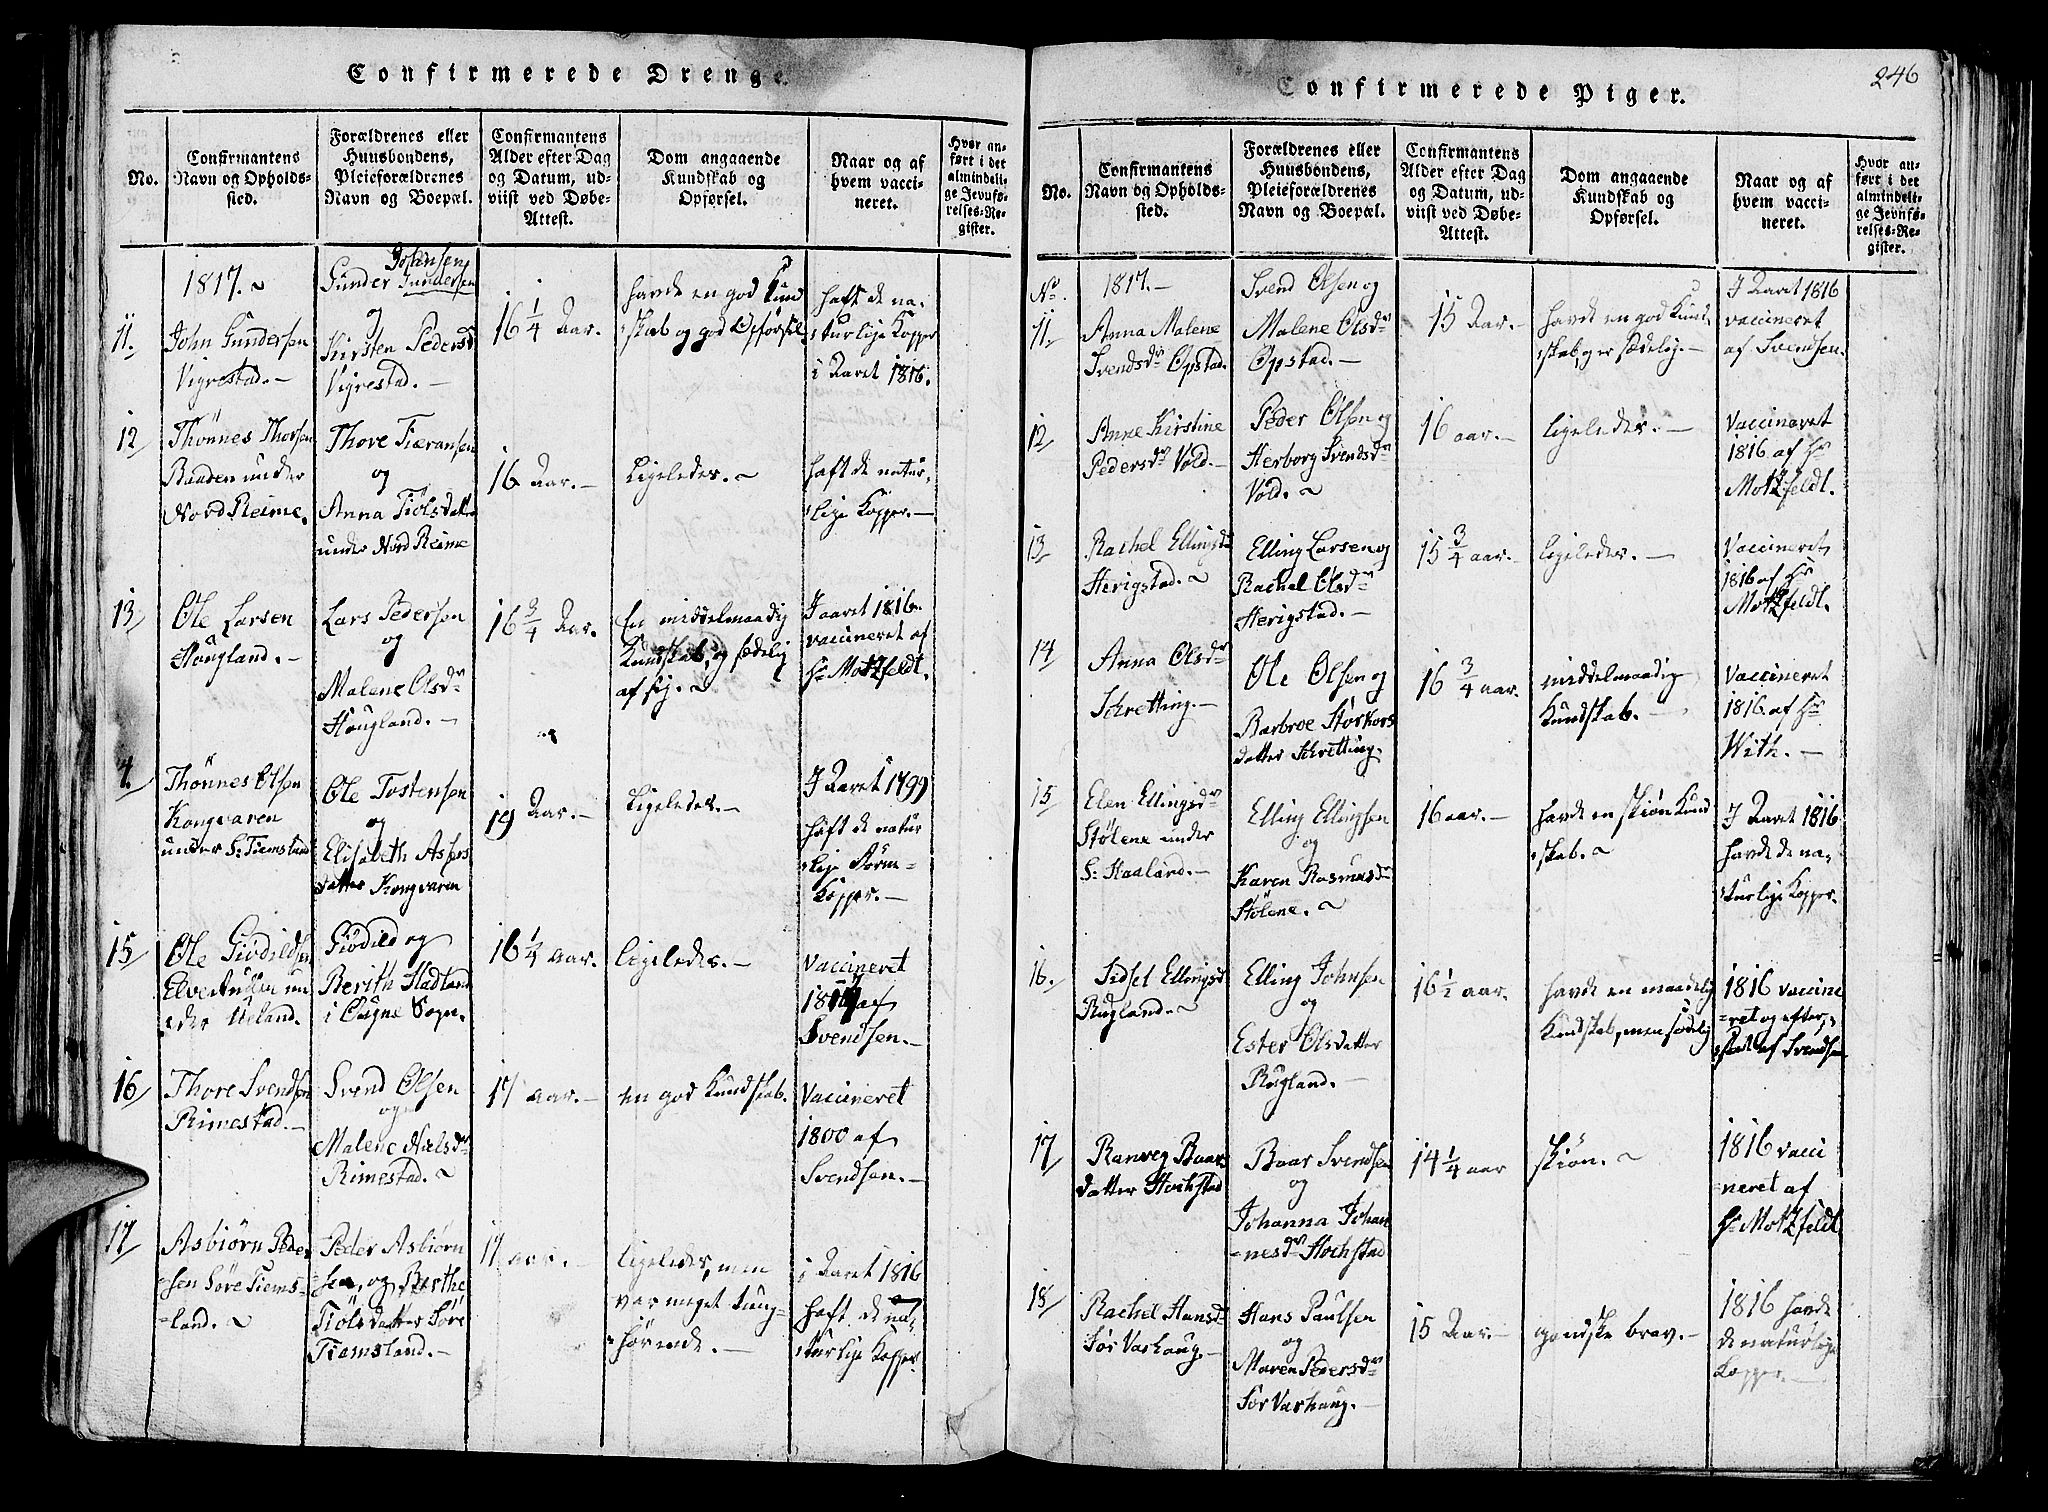 Confirmerede Drenge.
No.
Confirmantens
Navn og Opholds-
sted.
Forældrenes eller
Huusbondens,
Pleieforældrenes
Navn og Boepæl.
Confirmantens
Alder efter Dag
og Datum, ud-
viist ved Døbe-
Attest.
Dom angaaende
Kundskab og
Opførsel.
Naar og af
hvem vacci-
neret.
Hvor an-
ført i det
almindeli-
ge Jevnfø-
relses-Re-
gister.
11.
1817.
John Gundersen
Vigrestad.
Johansen
Gunder Gundersen
og
Kirsten Pedersd
Vigrestad.
16 1/4 Aar.
havde en god Kund
skab og god Opførsel
haft de na-
turlige Kopper
i Aaret 1816.
12
Thönnes Thorsen
Baaden under
Nord Reime.
Thore Tieransen
og
Anna Tiölsdatter
under Nord Reime
16 Aar.
Ligeledes.
haft de natur-
lige Kopper.
13
Ole Larsen
Hougland.
Lars Pedersen
og
Malene Olsdr
Hougland.
16 3/4 Aar.
En middelmaadig
Kundskab, og sædelig
af sig.
J aaret 1816.
vaccineret af
Hr Motzfeldt.
4.
Thönnes Olsen
Kongvaren
under S: Tiemsland
Ole Tostensen
og
Elisabeth Asers
datter Kongvaren
19 Aar.
Ligeledes.
J Aaret 1799
haft de natur
lige
Kopper.
15
Ole Giödildsen
un
der Ueland.
Giödild og
Berith Hadland
i Ougne Sogn.
16 1/4 aar.
ligeledes.
Vaccineret
af
Svendsen.
16
Thore Svendsen
Rimestad.
Svend Olsen
og
Malene Nielsdr
Rimestad.
17 aar.
en god Kundskab.
Vaccineret
1800 af
Svendsen.
17
Asbiörn Peder
sen Söre Tiems-
land.
Peder Asbiörn
sen, og Berthe
Tiölsdatter Söre
Tiemsland.
17 aar.
ligeledes, men
var meget tung-
hörende.
i Aaret 1816
haft de na-
turlige Kopper.
246
Confirmerede Piger.
No.
Confirmantens
Navn og Opholds-
sted.
Forældrenes eller
Huusbondens,
Pleieforældrenes
Navn og Boepæl.
Confirmantens
Alder efter Dag
og Datum, ud-
viist ved Døbe-
Attest.
Dom angaaende
Kundskab og
Opførsel.
Naar og af
hvem vacci-
neret.
Hvor an-
ført i det
almindeli-
ge Jevnfø-
relses-Re-
gister.
No.
11
1817.
Anna Malene
Svendsdr Opstad.
Svend Olsen og
Malene Olsdr
Opstad.
15 Aar.
havde en god Kund
skab, og er sædelig.
J Aaret 1816
vaccineret
af Svendsen.
12
Anne Kirstine
Pedersdr Vold.
Peder Olsen og
Herborg Svendsdr
Vold.
16 aar.
ligeledes.
Vaccineret
1816 af Hr
Motzfeldt.
13
Rachel Ellingsd
Herigstad.
Elling Larsen og
Rachel Olsdr
Herigstad.
15 3/4 aar.
ligeledes.
Vaccineret
1816 af Hr
Motzfeldt.
14
Anna Olsdr
Schretting.
Ole Olsen og
Barbroe Störkors
datter Schretting.
16 3/4 aar.
middelmaadig
Kundskab.
Vaccineret
1816 af Hr
With.
15
Elen Ellingsdr
Stölene under
S: Haaland.
Elling Ellingsen
og
Karen Rasmusdr
Stölene.
16 aar.
havde en skiön Kund
skab.
J Aaret 1816
havde de na-
turlige Kopper.
16.
Sidsel Ellingsd
Rugland.
Elling Johnsen
og
Ester Olsdatter
Rugland.
16 1/2 aar.
havde en maadelig
Kundskab, men sædelig
1816 vaccine
ret og efter-
af Svendsen
17
Ranveg Baars
datter Hochstad
Baar Svendsen
og
Johanna Johan
nesdr Hochstad
14 1/4 aar
skiön.
1816 vacci
neret af
Hr Motzfeldt
18
Rachel Hansd
Sör Varhaug.
Hans Paulsen
og
Maren Pedersdr
Sör Varhaug.
15 Aar.
gandske brav.
1816 havde
de naturlige
Kopper.